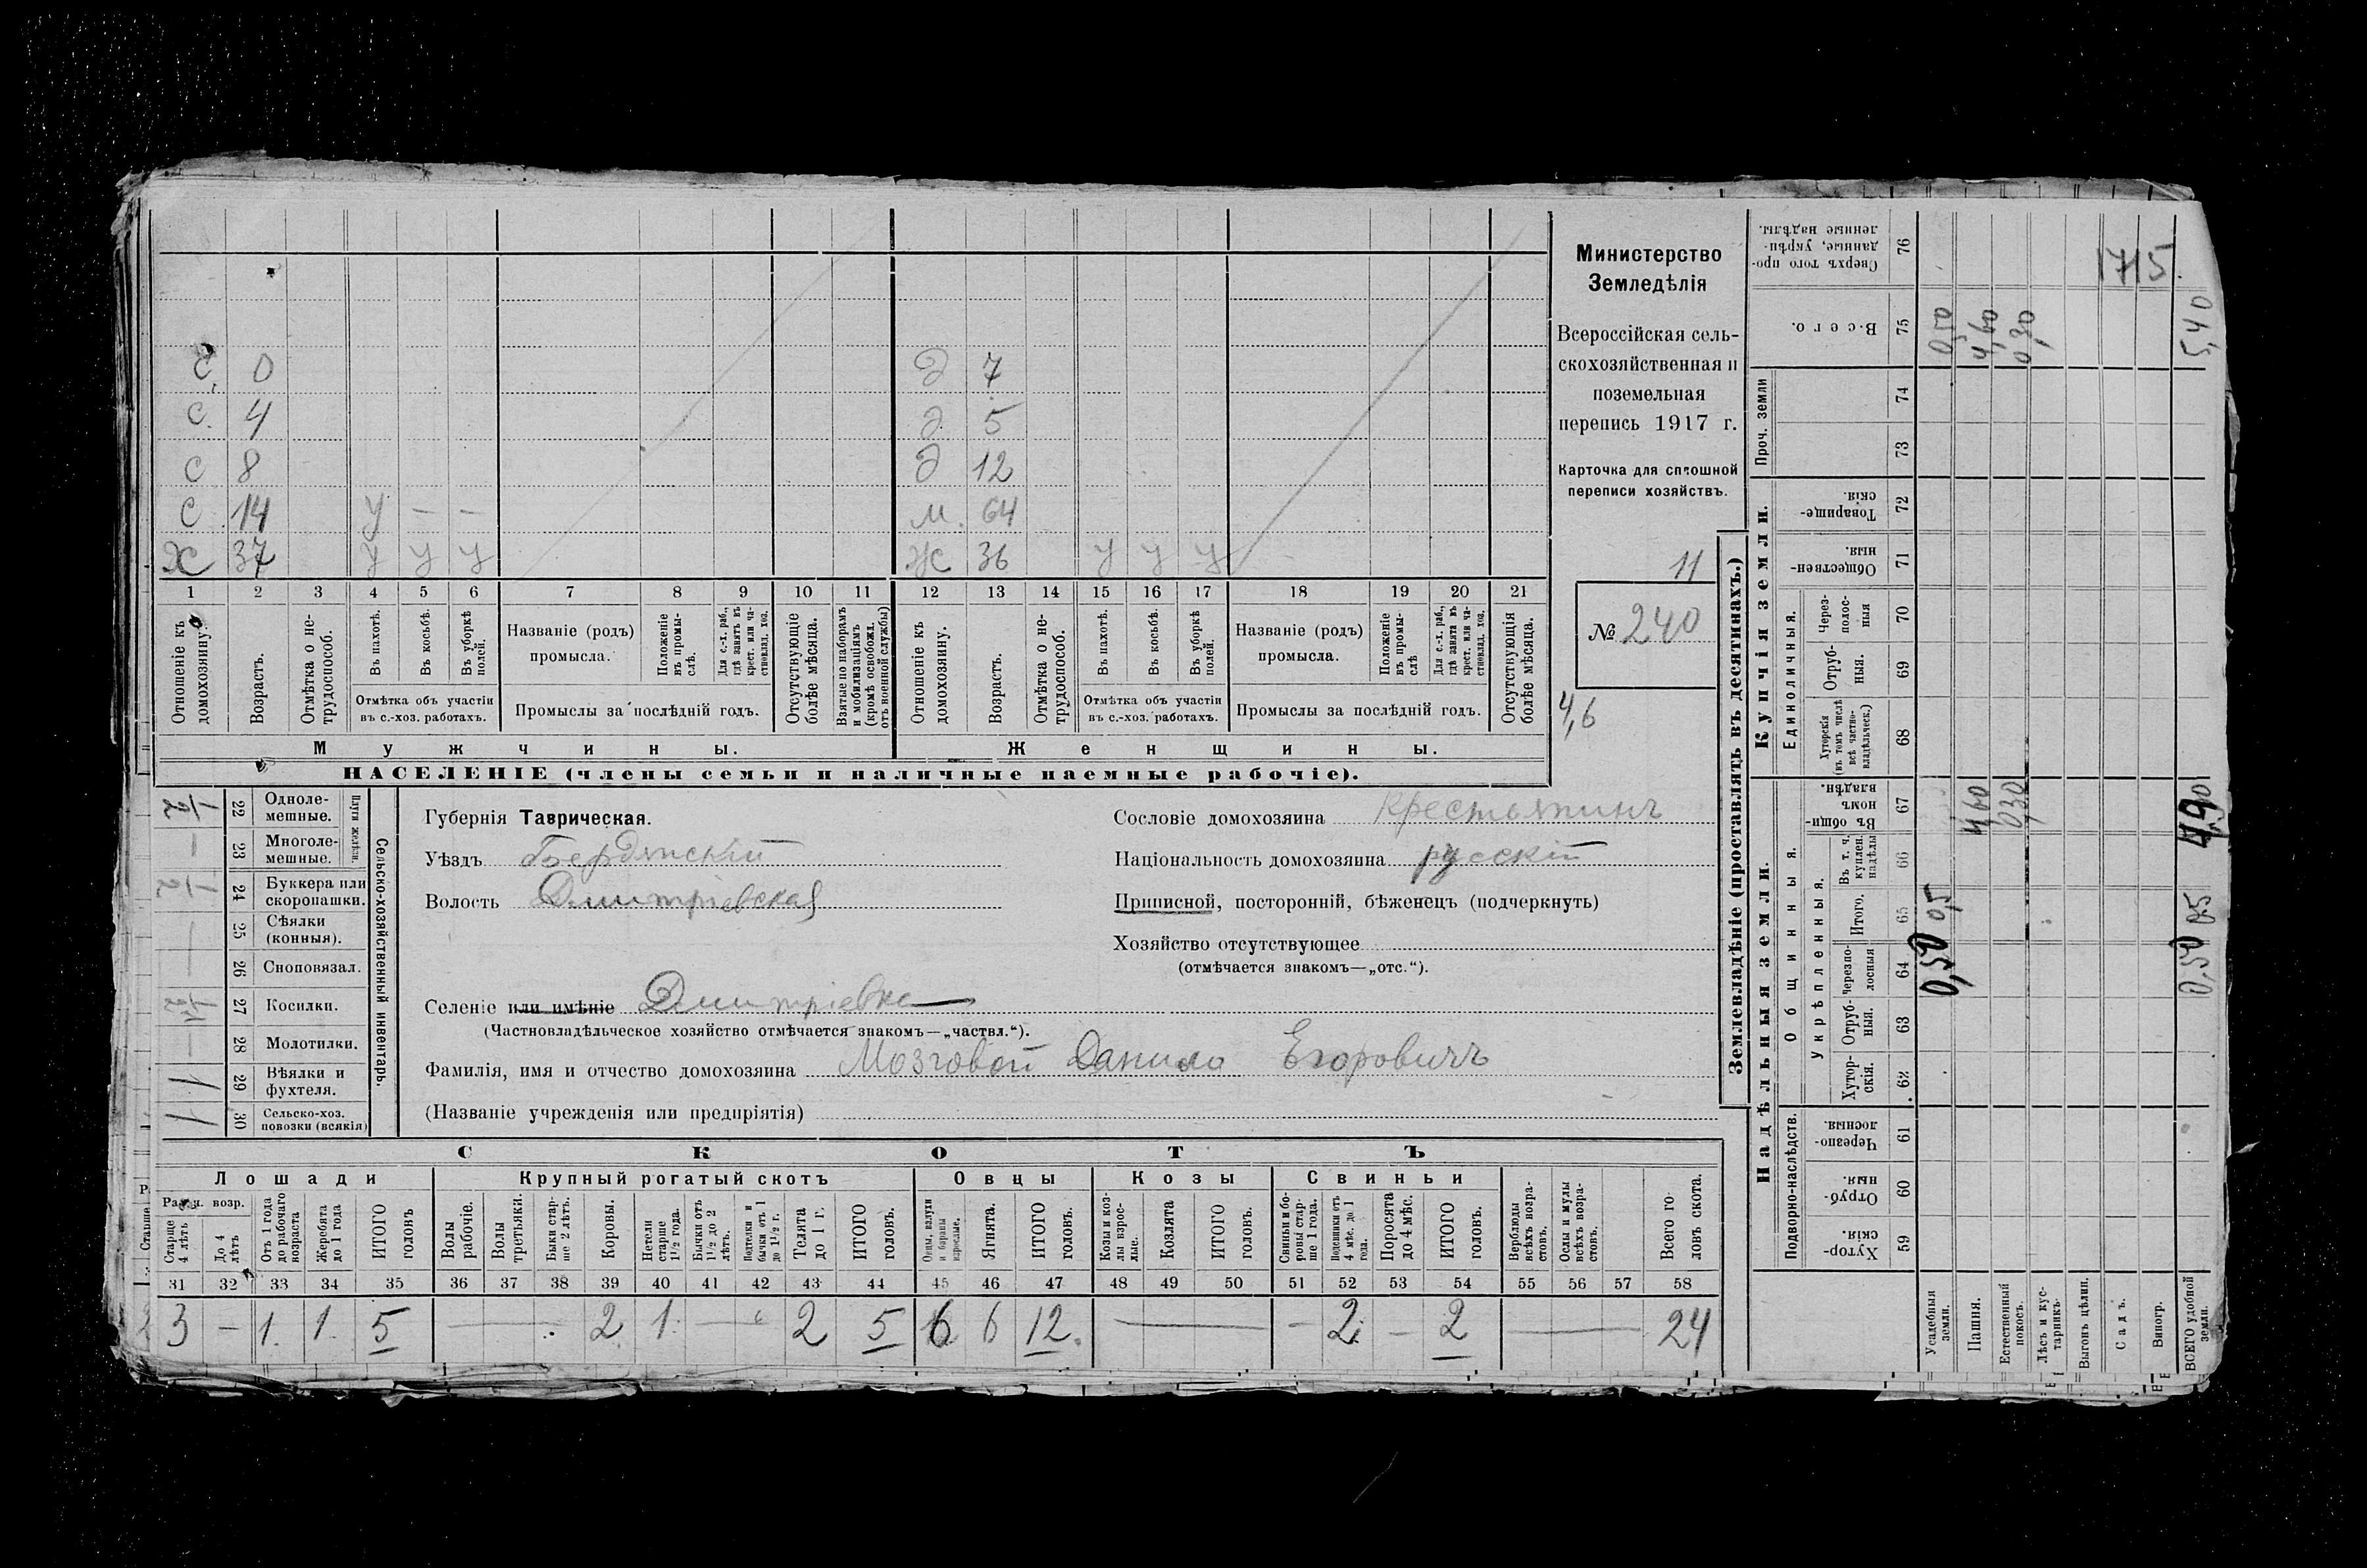 С. 0 Д 7
С. 4 Д. 5
С 8 Д 12
С 14 У — — М. 64
Х 37 У У У Ж 36 У У У
1 2 3 4 5 6 7 8 9 10 11 12 13 14 15 16 17 18 19 20 21
Отношеніе къ домохозяину.
Возрастъ.
Отмѣтка о не-трудоспособ.
Въ пахотѣ.
Въ косьбѣ.
Въ уборкѣ полей.
Отмѣтка объ участіи
въ с.-хоз. работахъ.
Названіе (родъ)
промысла.
Положеніе въ промы-слѣ.
Для с.-х. раб., гдѣ занятъ въ крест. или ча-стновлад. хоз.
Промыслы за послѣдній годъ.
Отсутствующіе болѣе мѣсяца.
Взятые по наборамъ и мобилизаціямъ (кромѣ освобожд. отъ военной службы)
Отношеніе къ домохозяину.
Возрастъ.
Отмѣтка о не-трудоспособ.
Въ пахотѣ.
Въ косьбѣ.
Въ уборкѣ полей.
Отмѣтка объ участіи
въ с.-хоз. работахъ.
Названіе (родъ)
промысла.
Положеніе въ промы-слѣ
Для с.-х. раб., гдѣ занята въ крест. или ча-стновлад. хоз.
Промыслы за послѣдній годъ.
Отсутствующія болѣе мѣсяца.
Мужчины. Женщины.
НАСЕЛЕНІЕ (члены семьи и наличные наемные рабочіе).
Министерство
Земледѣлія
Всероссійская сель-
скохозяйственная и
поземельная
перепись 1917 г.
Карточка для сплошной
переписи хозяйствъ.
11
№ 240
4,6
Сельско-хозяйственный инвентарь.
Плуги желѣзн.
1/2 22 Одноле-мешные.
— 23 Многоле-мешные.
1/2 24 Буккера или скоропашки.
— 25 Сѣялки (конныя).
— 26 Сноповязал.
27 Косилки.
— 28 Молотилки.
1 29 Вѣялки и фухтеля.
1 30 Сельско-хоз. повозки (всякія)
Губернія Таврическая.
Уѣздъ Бердянскій
Волость Дмитріевская
Сословіе домохозяина крестьянинъ
Національность домохозяина русскій
Приписной, посторонній, бѣженецъ (подчеркнуть)
Хозяйство отсутствующее
(отмѣчается знакомъ—„отс.“).
Селеніе или имѣніе Дмитріевка
(Частновладѣльческое хозяйство отмѣчается знакомъ—„частвл.“).
Фамилія, имя и отчество домохозяина Мозговой Данило Егоровичъ
(Названіе учрежденія или предпріятія)
СКОТЪ
Лошади Крупный рогатый скотъ Овцы Козы Свиньи
Рабоч. возр.
Старше 4 лѣтъ
До 4 лѣтъ
Отъ 1 года до рабочаго возраста
Жеребята до 1 года
ИТОГО головъ
Волы рабочіе.
Волы третьяки.
Быки стар-ше 2 лѣтъ.
Коровы.
Нетели старше 1½ года.
Бычки отъ 1½ до 2 лѣтъ.
Подтелки и бычки отъ 1 до 1½ г.
Телята до 1 г.
ИТОГО головъ.
Овцы, валухи и бараны взрослые.
Ягнята.
ИТОГО головъ.
Козы и коз-лы взрос-лые.
Козлята
ИТОГО головъ.
Свиньи и бо-ровы стар-ше 1 года.
Подсвинки отъ 4 мѣс. до 1 года.
Поросята до 4 мѣс.
ИТОГО головъ.
Верблюды всѣхъ возра-стовъ.
Ослы и мулы всѣхъ возра-стовъ.
Всего го-ловъ скота.
31 32 33 34 35 36 37 38 39 40 41 42 43 44 45 46 47 48 49 50 51 52 53 54 55 56 57 58
3 — 1. 1. 5 — 2 1. — 2 5 6 6 12. — — 2. — 2 — 24
Землевладѣніе (проставлять въ десятинахъ.)
Надѣльныя земли. Купчія земли. Проч. земли
Подворно-наслѣдств.
Общинныя.
Укрѣпленныя.
Единоличныя.
Хутор-скія. 59
Отруб-ныя. 60
Черезпо-лосныя. 61
Хутор-скія. 62
Отруб-ныя. 63
Черезпо-лосныя 64
Итого. 65
Въ т. ч. куплен. надѣлы 66
Въ общин-номъ владѣн. 67
Хуторскія (въ томъ числѣ всѣ частно-владѣльческ.) 68
Отруб-ныя. 69
Через-полос-ныя 70
Обществен-ныя. 71
Товарище-скія. 72
73
74
Всего. 75
Сверхъ того про-данные, укрѣп-ленные надѣлы. 76
Усадебныя земли. 0,50 0,5 0,50
Пашня. 4,60 4,60
Естественный покосъ. 0,30 0,30
Лѣсъ и кус-тарникъ.
Выгонъ цѣлин.
Садъ.
Виногр.
ВСЕГО удобной земли. 0,50 0,5 4,90 5,40
1715.